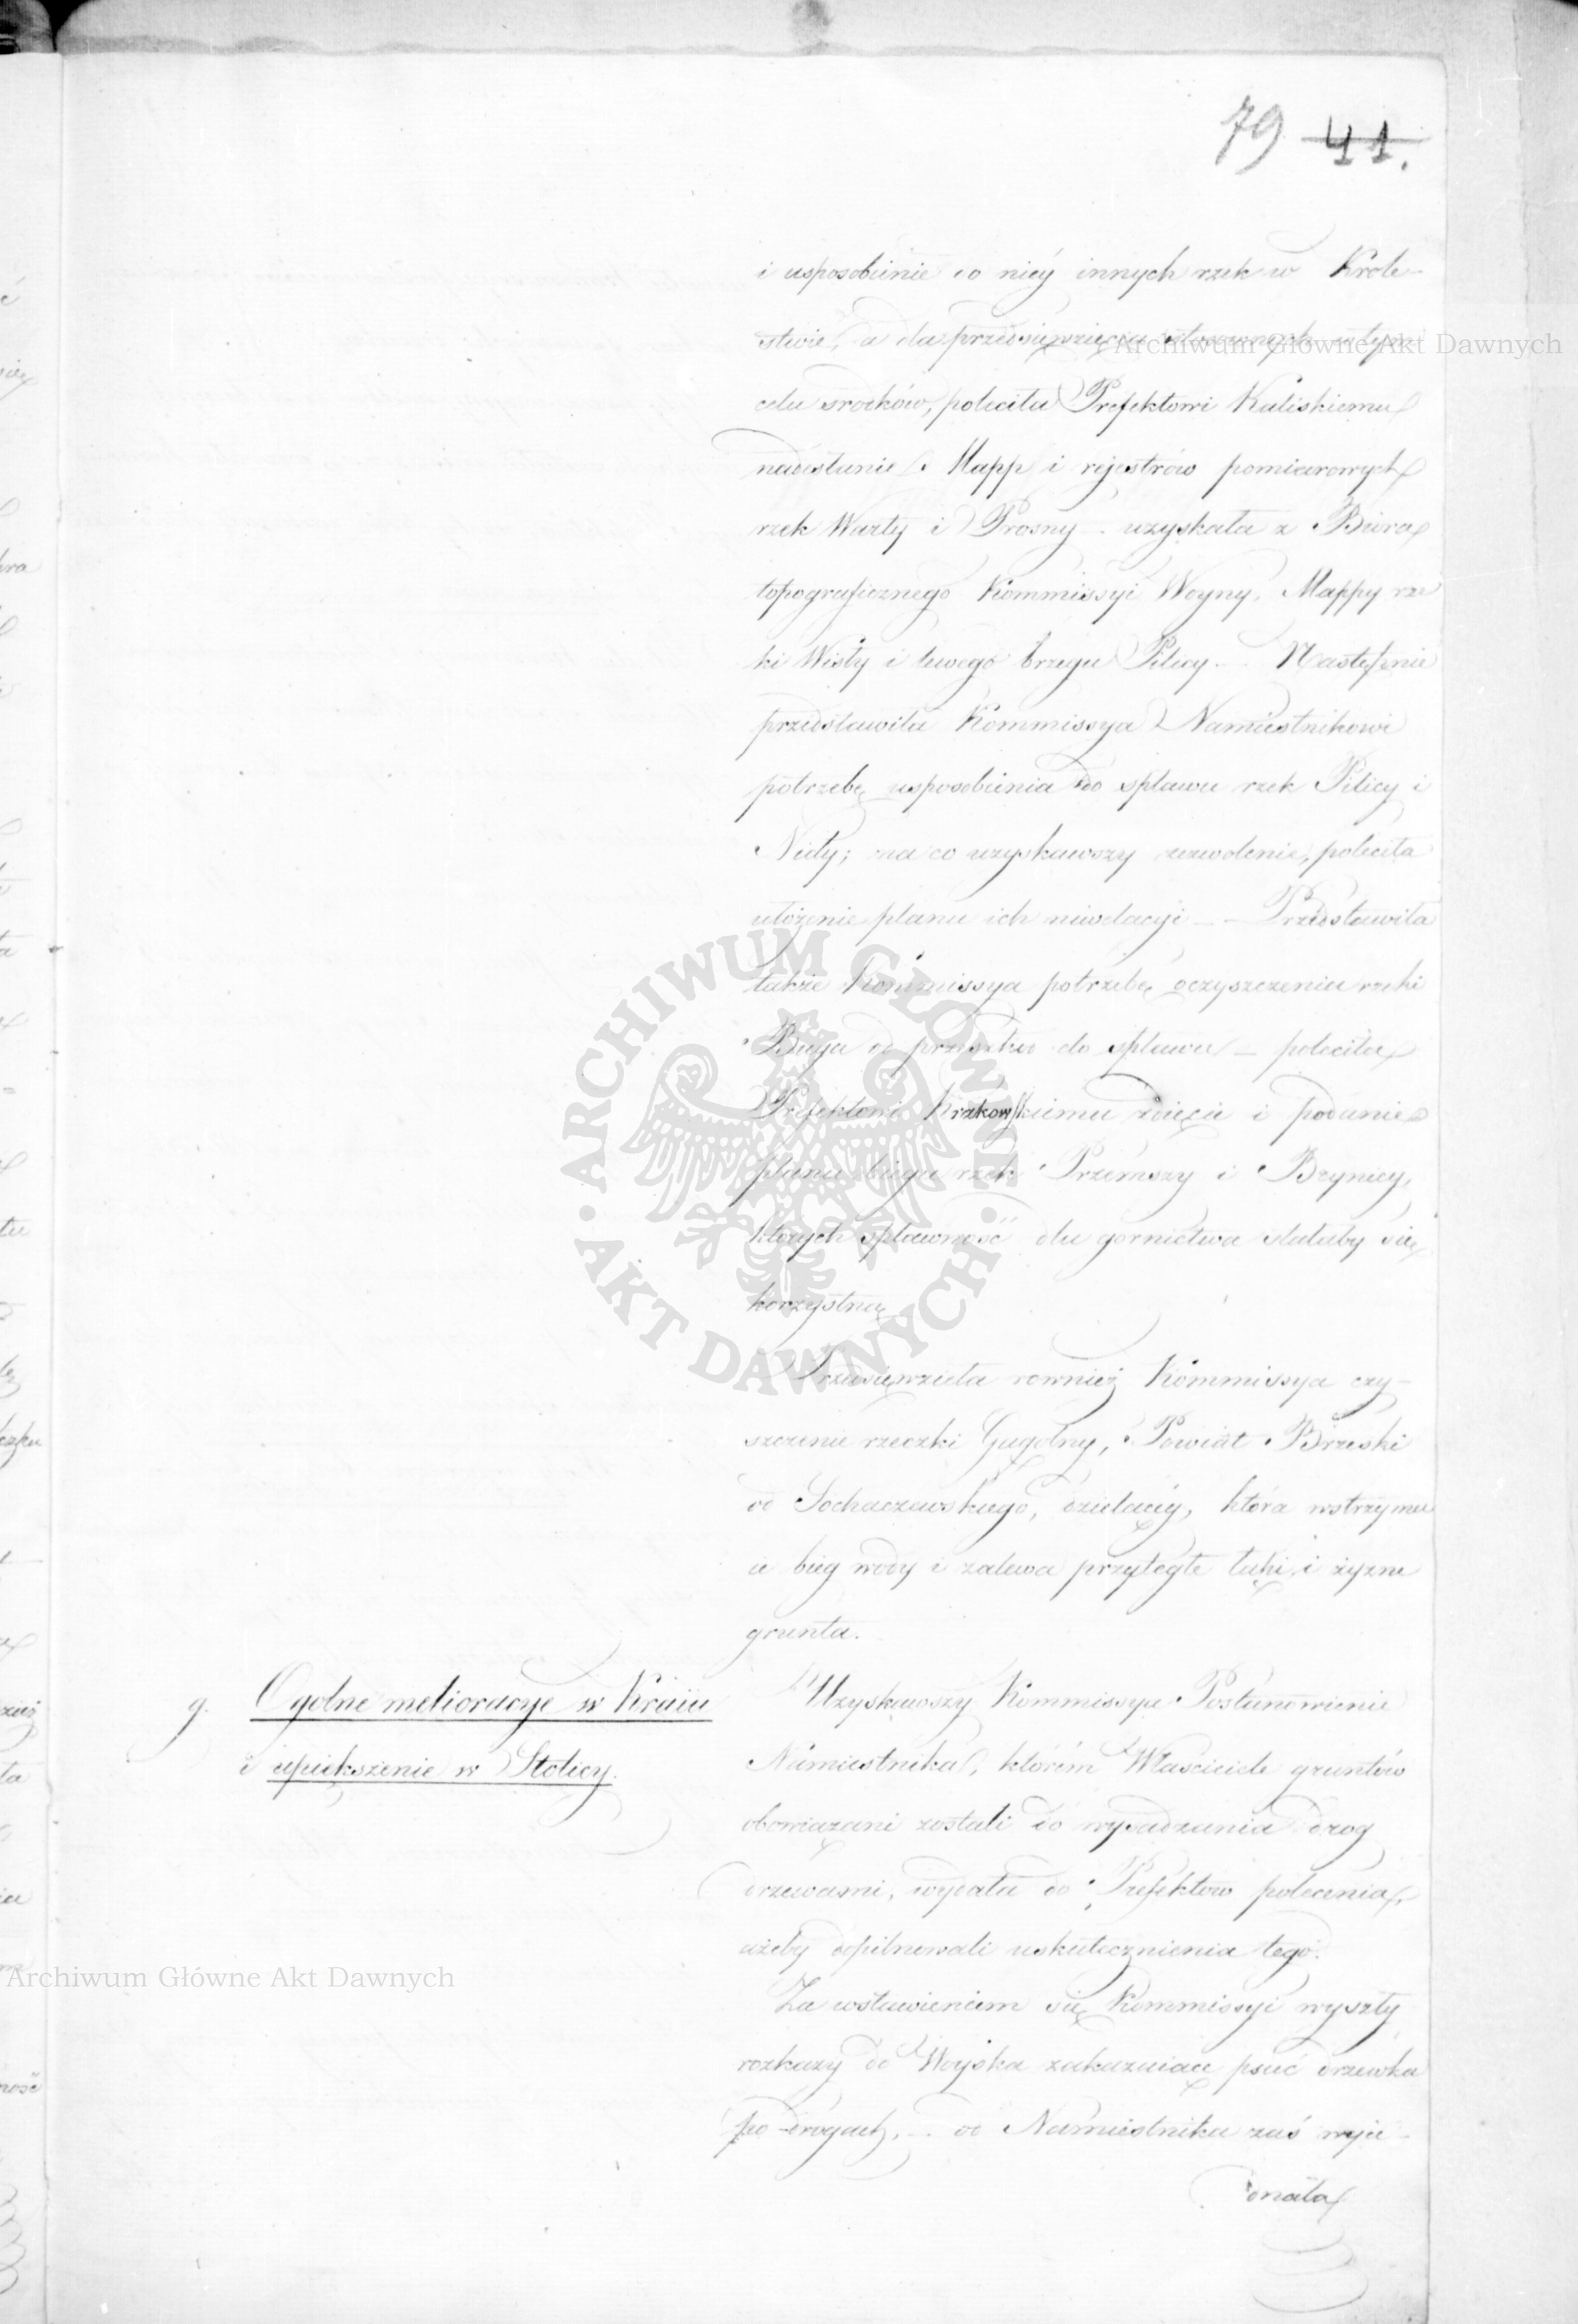 79 41.
i usposobienie do niey innych rzek w Krole-
stwie, a dla przedsięwzięcia stosownych w tym
celu srodków, poleciła Prefektowi Kaliskiemu
nadesłanie Mapp i rejestrów pomiarowych
rzek Warty i Prosny - uzyskała z Biura
topograficznego Kommissyi Woyny, Mappy rze
ki Wisły i lewego brzegu Pilicy. - Następnie
przedstawiła Kommissya Namiestnikowi
potrzebę usposobienia do spławu rzek Pilicy i
Nidy; na co uzyskawszy zezwolenie, poleciła
ułożenie planu ich niwelacyi - - Przedstawiła
także Kommissya potrzebę oczyszczenia rzeki
Buga od przeszkód do spławu - poleciła
Prefektowi Krakowskiemu zdięcie i podanie
planu biegu rzek Przemszy i Brynicy,
których spławność dla gornictwa stałaby się
korzystną
Przedsięwzieła rownież Kommissya czy-
szczenie rzeczki Gągolny, Powiat Brzeski
od Sochaczewskiego, dzielącey, która wstrzymu
ie bieg wody i zalewa przyległe łąki i żyzne
grunta.
g. Ogolne melioracye w Kraiu
i upiększenie w Stolicy.
Uzyskawszy Kommissya Postanowienie
Namiestnika, którem Właściciele gruntów
obowiązani zostali do wysadzania drog
drzewami, wydała do Prefektow polecenia,
ażeby dopilnowali uskutecznienia tego.
Za wstawieniem się Kommissyi wyszły
rozkazy do Woyska zakazuiące psuć drzewka
po drogach, - od Namiestnika zaś wyie-
dnała
Archiwum Główne Akt Dawnych
Archiwum Główne Akt Dawnych
ARCHIWUM GŁÓWNE · AKT DAWNYCH ·